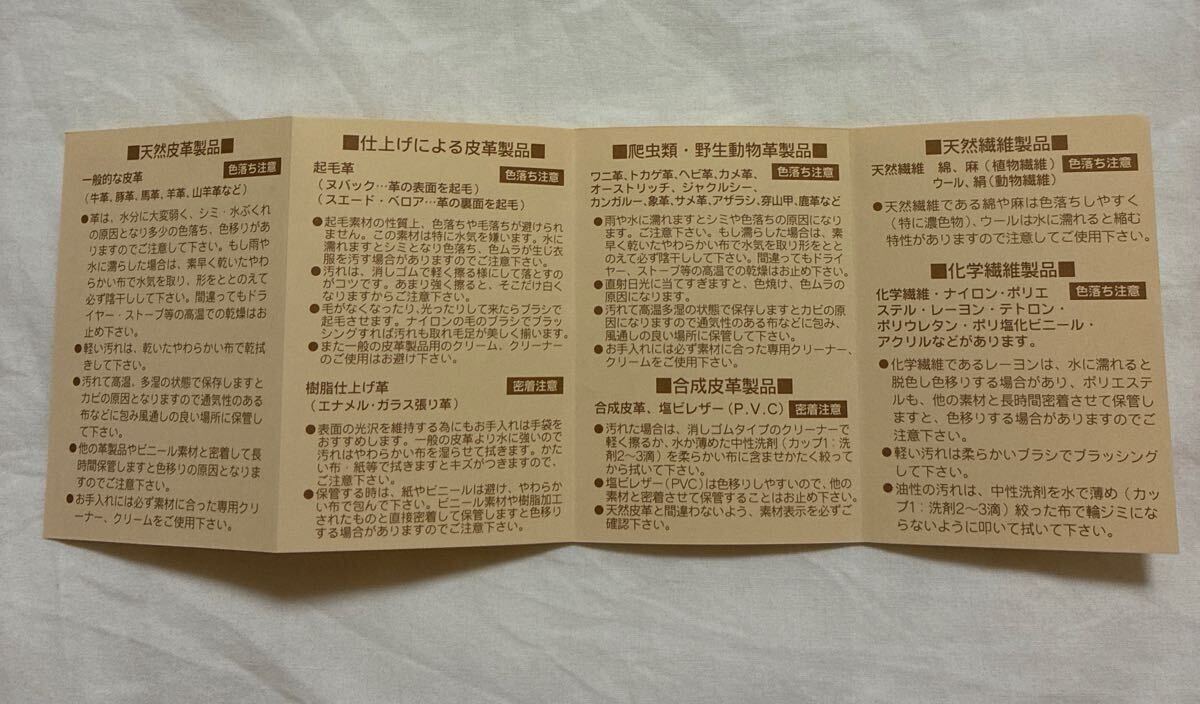 ■天然皮革製品■
色落ち注意
一般的な皮革
(牛革、豚革、馬革、羊革、山羊革など)
●革は、水分に大変弱く、シミ・水ぶくれ
の原因となり多少の色落ち、色移りがあ
りますのでご注意して下さい。もし雨や
水に濡らした場合は、素早く乾いたやわ
らかい布で水気を取り、形をととのえて
必ず陰干しして下さい。間違ってもドラ
イヤー・ストーブ等の高温での乾燥はお
止め下さい。
●軽い汚れは、乾いたやわらかい布で乾拭
きして下さい。
●汚れて高温、多湿の状態で保存しますと
カビの原因となりますので通気性のある
布などに包み風通しの良い場所に保管し
て下さい。
●他の革製品やビニール素材と密着して長
時間保管しますと色移りの原因となりま
すのでご注意下さい。
●お手入れには必ず素材に合った専用クリ
ーナー、クリームをご使用下さい。
■仕上げによる皮革製品■
起毛革
色落ち注意
(ヌバック…革の表面を起毛)
(スエード・ベロア…革の裏面を起毛)
●起毛素材の性質上、色落ちや毛落ちが避けられ
ません。この素材は特に水気を嫌います。水に
濡れますとシミとなり色落ち、色ムラが生じ衣
服を汚す場合がありますのでご注意下さい。
●汚れは、消しゴムで軽く擦る様にして落とすの
がコツです。あまり強く擦ると、そこだけ白く
なりますからご注意下さい。
●毛がなくなったり、光ったりして来たらブラシで
起毛させます。ナイロンの毛のブラシでブラッ
シングすれば汚れも取れ毛足が美しく揃います。
●また一般の皮革製品用のクリーム、クリーナー
のご使用はお避け下さい。
樹脂仕上げ革
密着注意
(エナメル・ガラス張リ革)
●表面の光沢を維持する為にもお手入れは手袋を
おすすめします。一般の皮革より水に強いので
汚れはやわらかい布を湿らせて拭きます。かた
い布・紙等で拭きますとキズがつきますので、
ご注意下さい。
●保管する時は、紙やビニールは避け、やわらか
い布で包んで下さい。ビニール素材や樹脂加工
されたものと直接密着して保管しますと色移り
する場合がありますのでご注意下さい。
■爬虫類・野生動物革製品■
ワニ革、トカゲ革、ヘビ革、カメ革、
色落ち注意
オーストリッチ、ジャクルシー、
カンガルー、象革、サメ革、アザラシ、穿山甲、鹿革など
●雨や水に濡れますとシミや色落ちの原因になり
ます。ご注意下さい。もし濡らした場合は、素
早く乾いたやわらかい布で水気を取り形をとと
のえて必ず陰干しして下さい。間違ってもドライ
ヤー、ストーブ等の高温での乾燥はお止め下さい。
●直射日光に当てすぎますと、色焼け、色ムラの
原因になります。
●汚れて高温多湿の状態で保存しますとカビの原
因になりますので通気性のある布などに包み、
風通しの良い場所に保管して下さい。
●お手入れには必ず素材に合った専用クリーナー、
クリームをご使用下さい。
■合成皮革製品■
合成皮革、塩ビレザー(P.V.C)
密着注意
●汚れた場合は、消しゴムタイプのクリーナーで
軽く擦るか、水か薄めた中性洗剤(カップ1:洗
剤2〜3滴)を柔らかい布に含ませかたく絞って
から拭いて下さい。
●塩ビレザー(PVC)は色移りしやすいので、他の
素材と密着させて保管することはお止め下さい。
●天然皮革と間違わないよう、素材表示を必ずご
確認下さい。
■天然繊維製品■
天然繊維 綿、麻(植物繊維)
ウール、絹(動物繊維)
色落ち注意
●天然繊維である綿や麻は色落ちしやすく
(特に濃色物)、ウールは水に濡れると縮む
特性がありますので注意してご使用下さい。
■化学繊維製品■
化学繊維・ナイロン・ポリエ
色落ち注意
ステル・レーヨン・テトロン・
ポリウレタン・ポリ塩化ビニール・
アクリルなどがあります。
●化学繊維であるレーヨンは、水に濡れると
脱色し色移りする場合があり、ポリエステ
ルも、他の素材と長時間密着させて保管し
ますと、色移りする場合がありますのでご
注意下さい。
●軽い汚れは柔らかいブラシでブラッシング
して下さい。
●油性の汚れは、中性洗剤を水で薄め(カッ
プ1:洗剤2〜3滴)絞った布で輪ジミにな
らないように叩いて拭いて下さい。